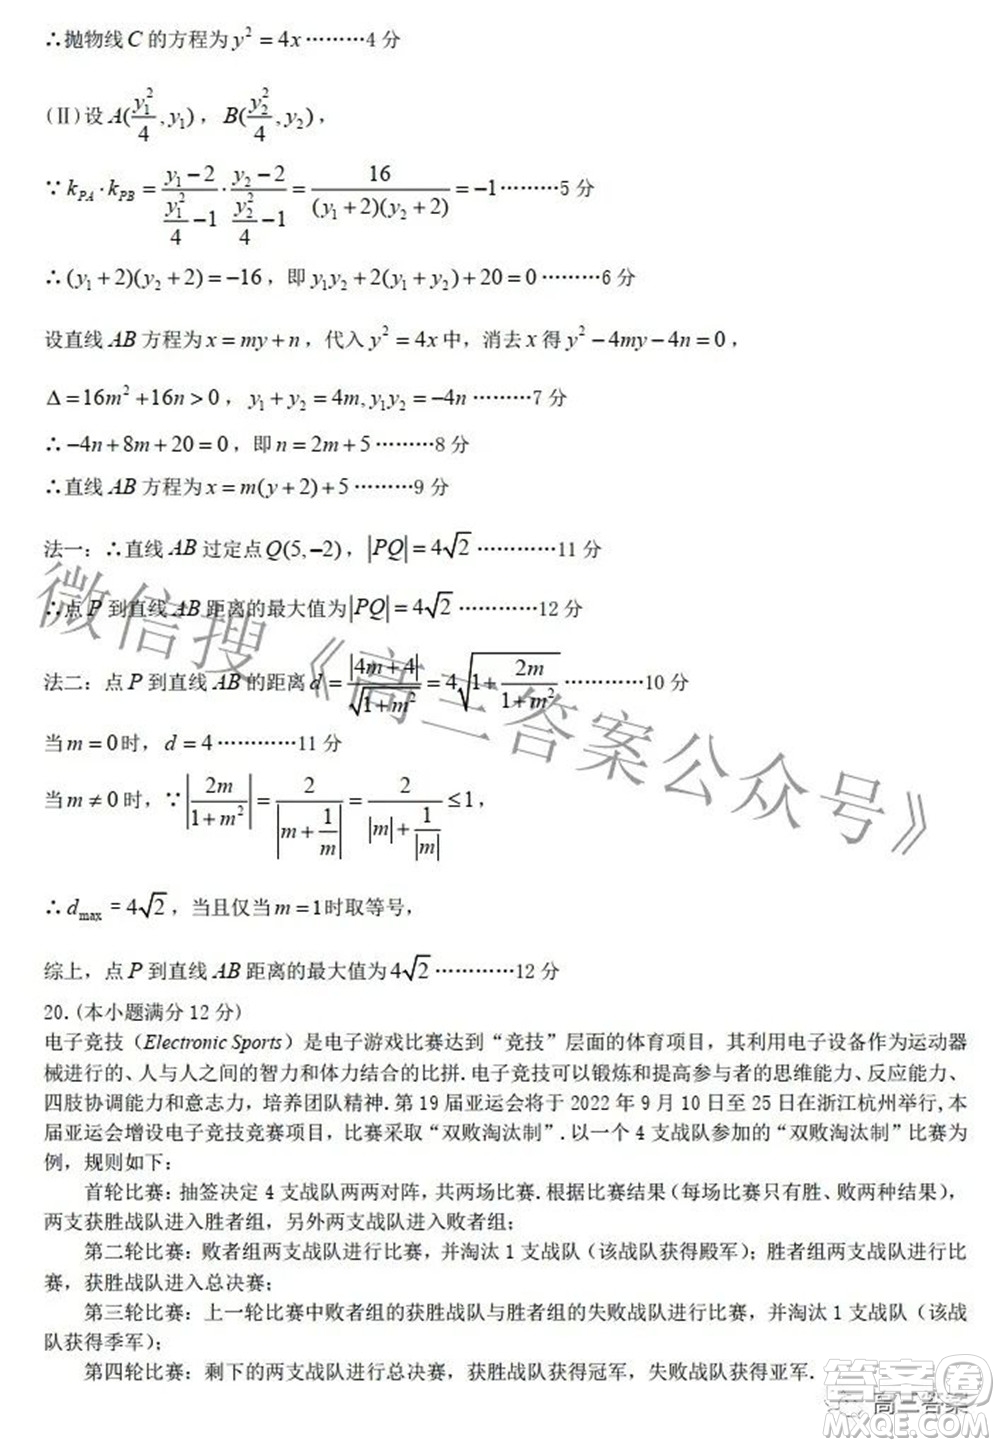 ∴抛物线 C 的方程为 y² = 4x ………4 分
(Ⅱ)设 A(y₁²/4, y₁)，B(y₂²/4, y₂)，
∵ k_PA · k_PB = (y₁−2)/(y₁²/4 −1) · (y₂−2)/(y₂²/4 −1) = 16/((y₁+2)(y₂+2)) = −1 ………5 分
∴ (y₁+2)(y₂+2) = −16，即 y₁y₂ + 2(y₁+y₂) + 20 = 0 ………6 分
设直线 AB 方程为 x = my + n，代入 y² = 4x 中，消去 x 得 y² − 4my − 4n = 0，
Δ = 16m² + 16n > 0，y₁ + y₂ = 4m, y₁y₂ = −4n ………7 分
∴ −4n + 8m + 20 = 0，即 n = 2m + 5 ………8 分
∴直线 AB 方程为 x = m(y + 2) + 5 ………9 分
法一：∴直线 AB 过定点 Q(5, −2)，|PQ| = 4√2 …………11 分
∴点 P 到直线 AB 距离的最大值为 |PQ| = 4√2 …………12 分
法二：点 P 到直线 AB 的距离 d = |4m+4|/√(1+m²) = 4√(1 + 2m/(1+m²)) …………10 分
当 m = 0 时，d = 4 …………11 分
当 m ≠ 0 时，∵ |2m/(1+m²)| = 2/|m + 1/m| = 2/(|m| + 1/|m|) ≤ 1，
∴ d_max = 4√2，当且仅当 m = 1 时取等号，
综上，点 P 到直线 AB 距离的最大值为 4√2 …………12 分
20.(本小题满分 12 分)
电子竞技（Electronic Sports）是电子游戏比赛达到“竞技”层面的体育项目，其利用电子设备作为运动器
械进行的、人与人之间的智力和体力结合的比拼.电子竞技可以锻炼和提高参与者的思维能力、反应能力、
四肢协调能力和意志力，培养团队精神.第 19 届亚运会将于 2022 年 9 月 10 日至 25 日在浙江杭州举行,本
届亚运会增设电子竞技竞赛项目，比赛采取“双败淘汰制”.以一个 4 支战队参加的“双败淘汰制”比赛为
例，规则如下：
首轮比赛：抽签决定 4 支战队两两对阵，共两场比赛.根据比赛结果（每场比赛只有胜、败两种结果），
两支获胜战队进入胜者组，另外两支战队进入败者组；
第二轮比赛：败者组两支战队进行比赛，并淘汰 1 支战队（该战队获得殿军）；胜者组两支战队进行比
赛，获胜战队进入总决赛；
第三轮比赛：上一轮比赛中败者组的获胜战队与胜者组的失败战队进行比赛，并淘汰 1 支战队（该战
队获得季军）；
第四轮比赛：剩下的两支战队进行总决赛，获胜战队获得冠军，失败战队获得亚军.
微信搜《高三答案公众号》
答案圈
高三答案
MXQE.COM